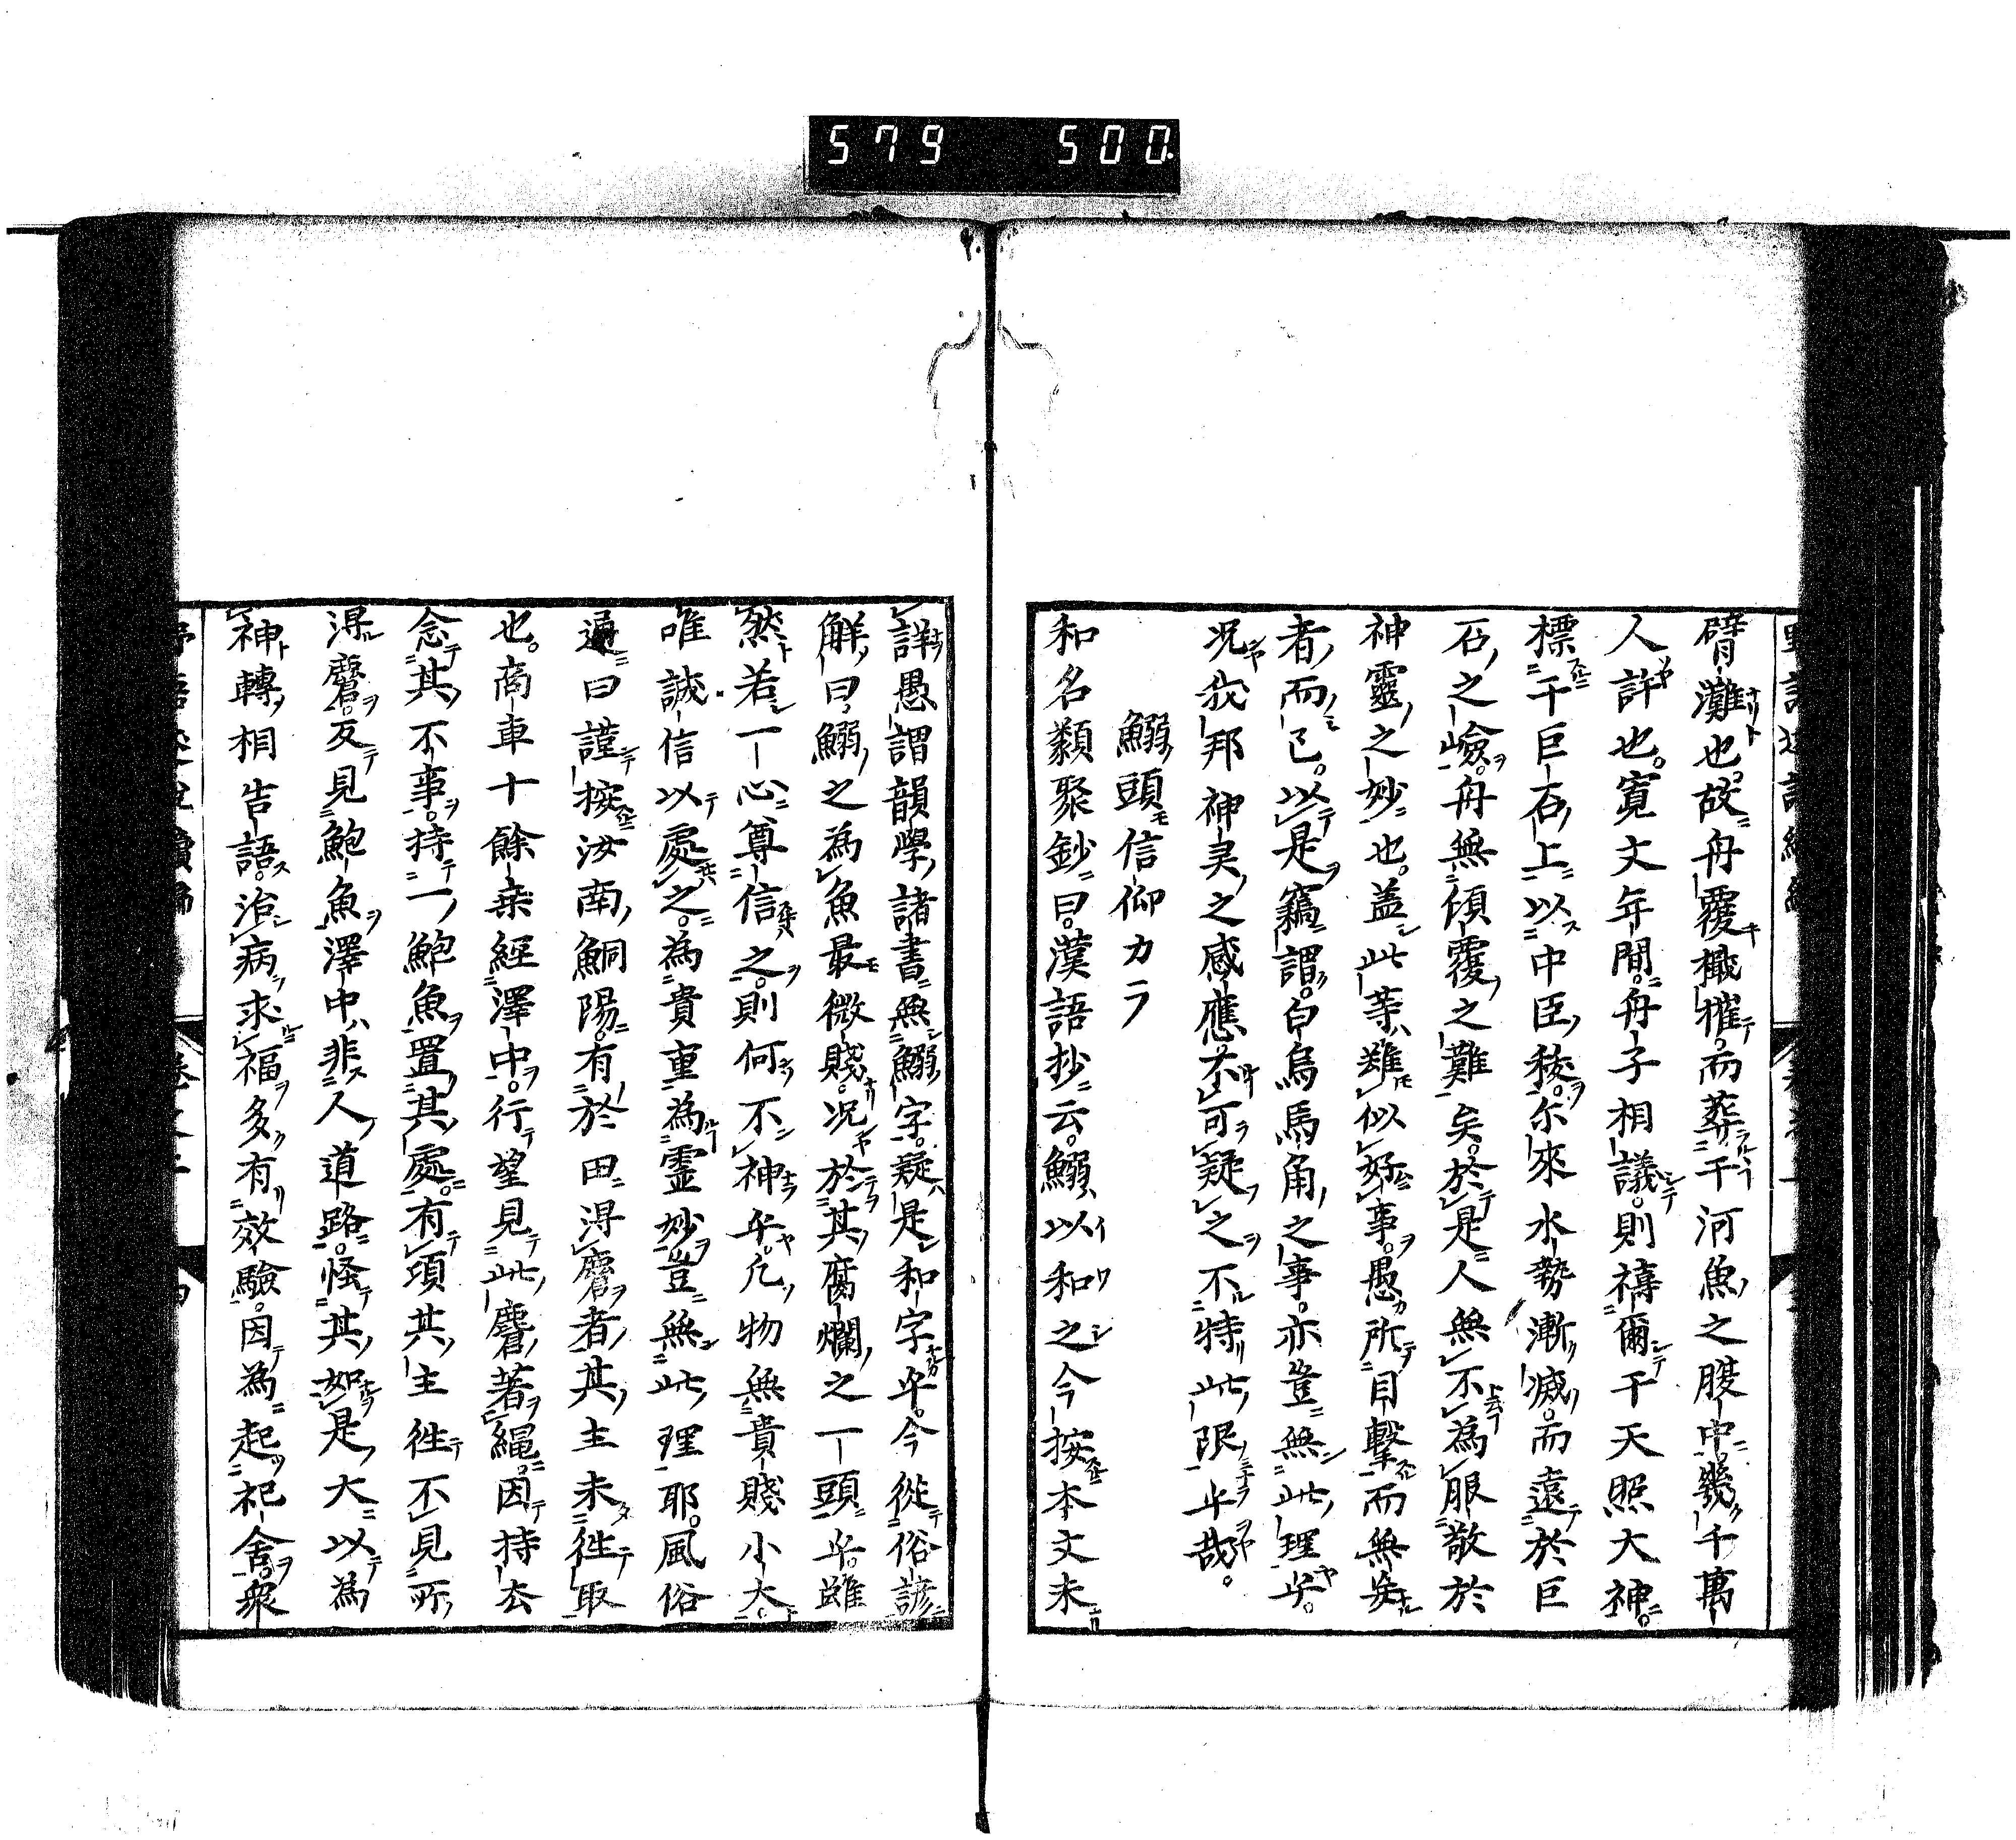 579 500
臂灘也故舟覆檝摧而葬于河魚之腹中幾千萬
人許也寛文年間舟子相議則禱爾于天照大神
標于巨石上以中臣秡尓來水勢漸减而遠於巨
石之嶮舟無傾覆之難矣於是人無不為服敬於
神靈之妙也盖此等雖似好事愚所目擊而無矣
者而已以是竊謂白烏馬角之事亦豈無此理乎
况我邦神灵之感應不可疑之不特此限乎哉
鰯頭信仰カラ
和名類聚鈔曰漢語抄云鰯以和之今按本文未
詳愚謂韻學諸書無鰯字疑是和字乎今從俗諺
觧曰鰯之為魚最微賤况於其腐爛之一頭乎雖
然若一心尊信之則何不神乎凡物無貴賤小大
唯誠信以處之為貴重為霊妙豈無此理耶風俗
通曰謹按汝南鮦陽有於田淂麏者其主未徃取
也商車十餘乗經澤中行望見此麏著繩因持去
念其不事持一鮑魚置其處有頃其主徃不見所
淂麏反見鮑魚澤中非人道路怪其如是大以為
神轉相告語治病求福多有效驗因為起祀舍衆